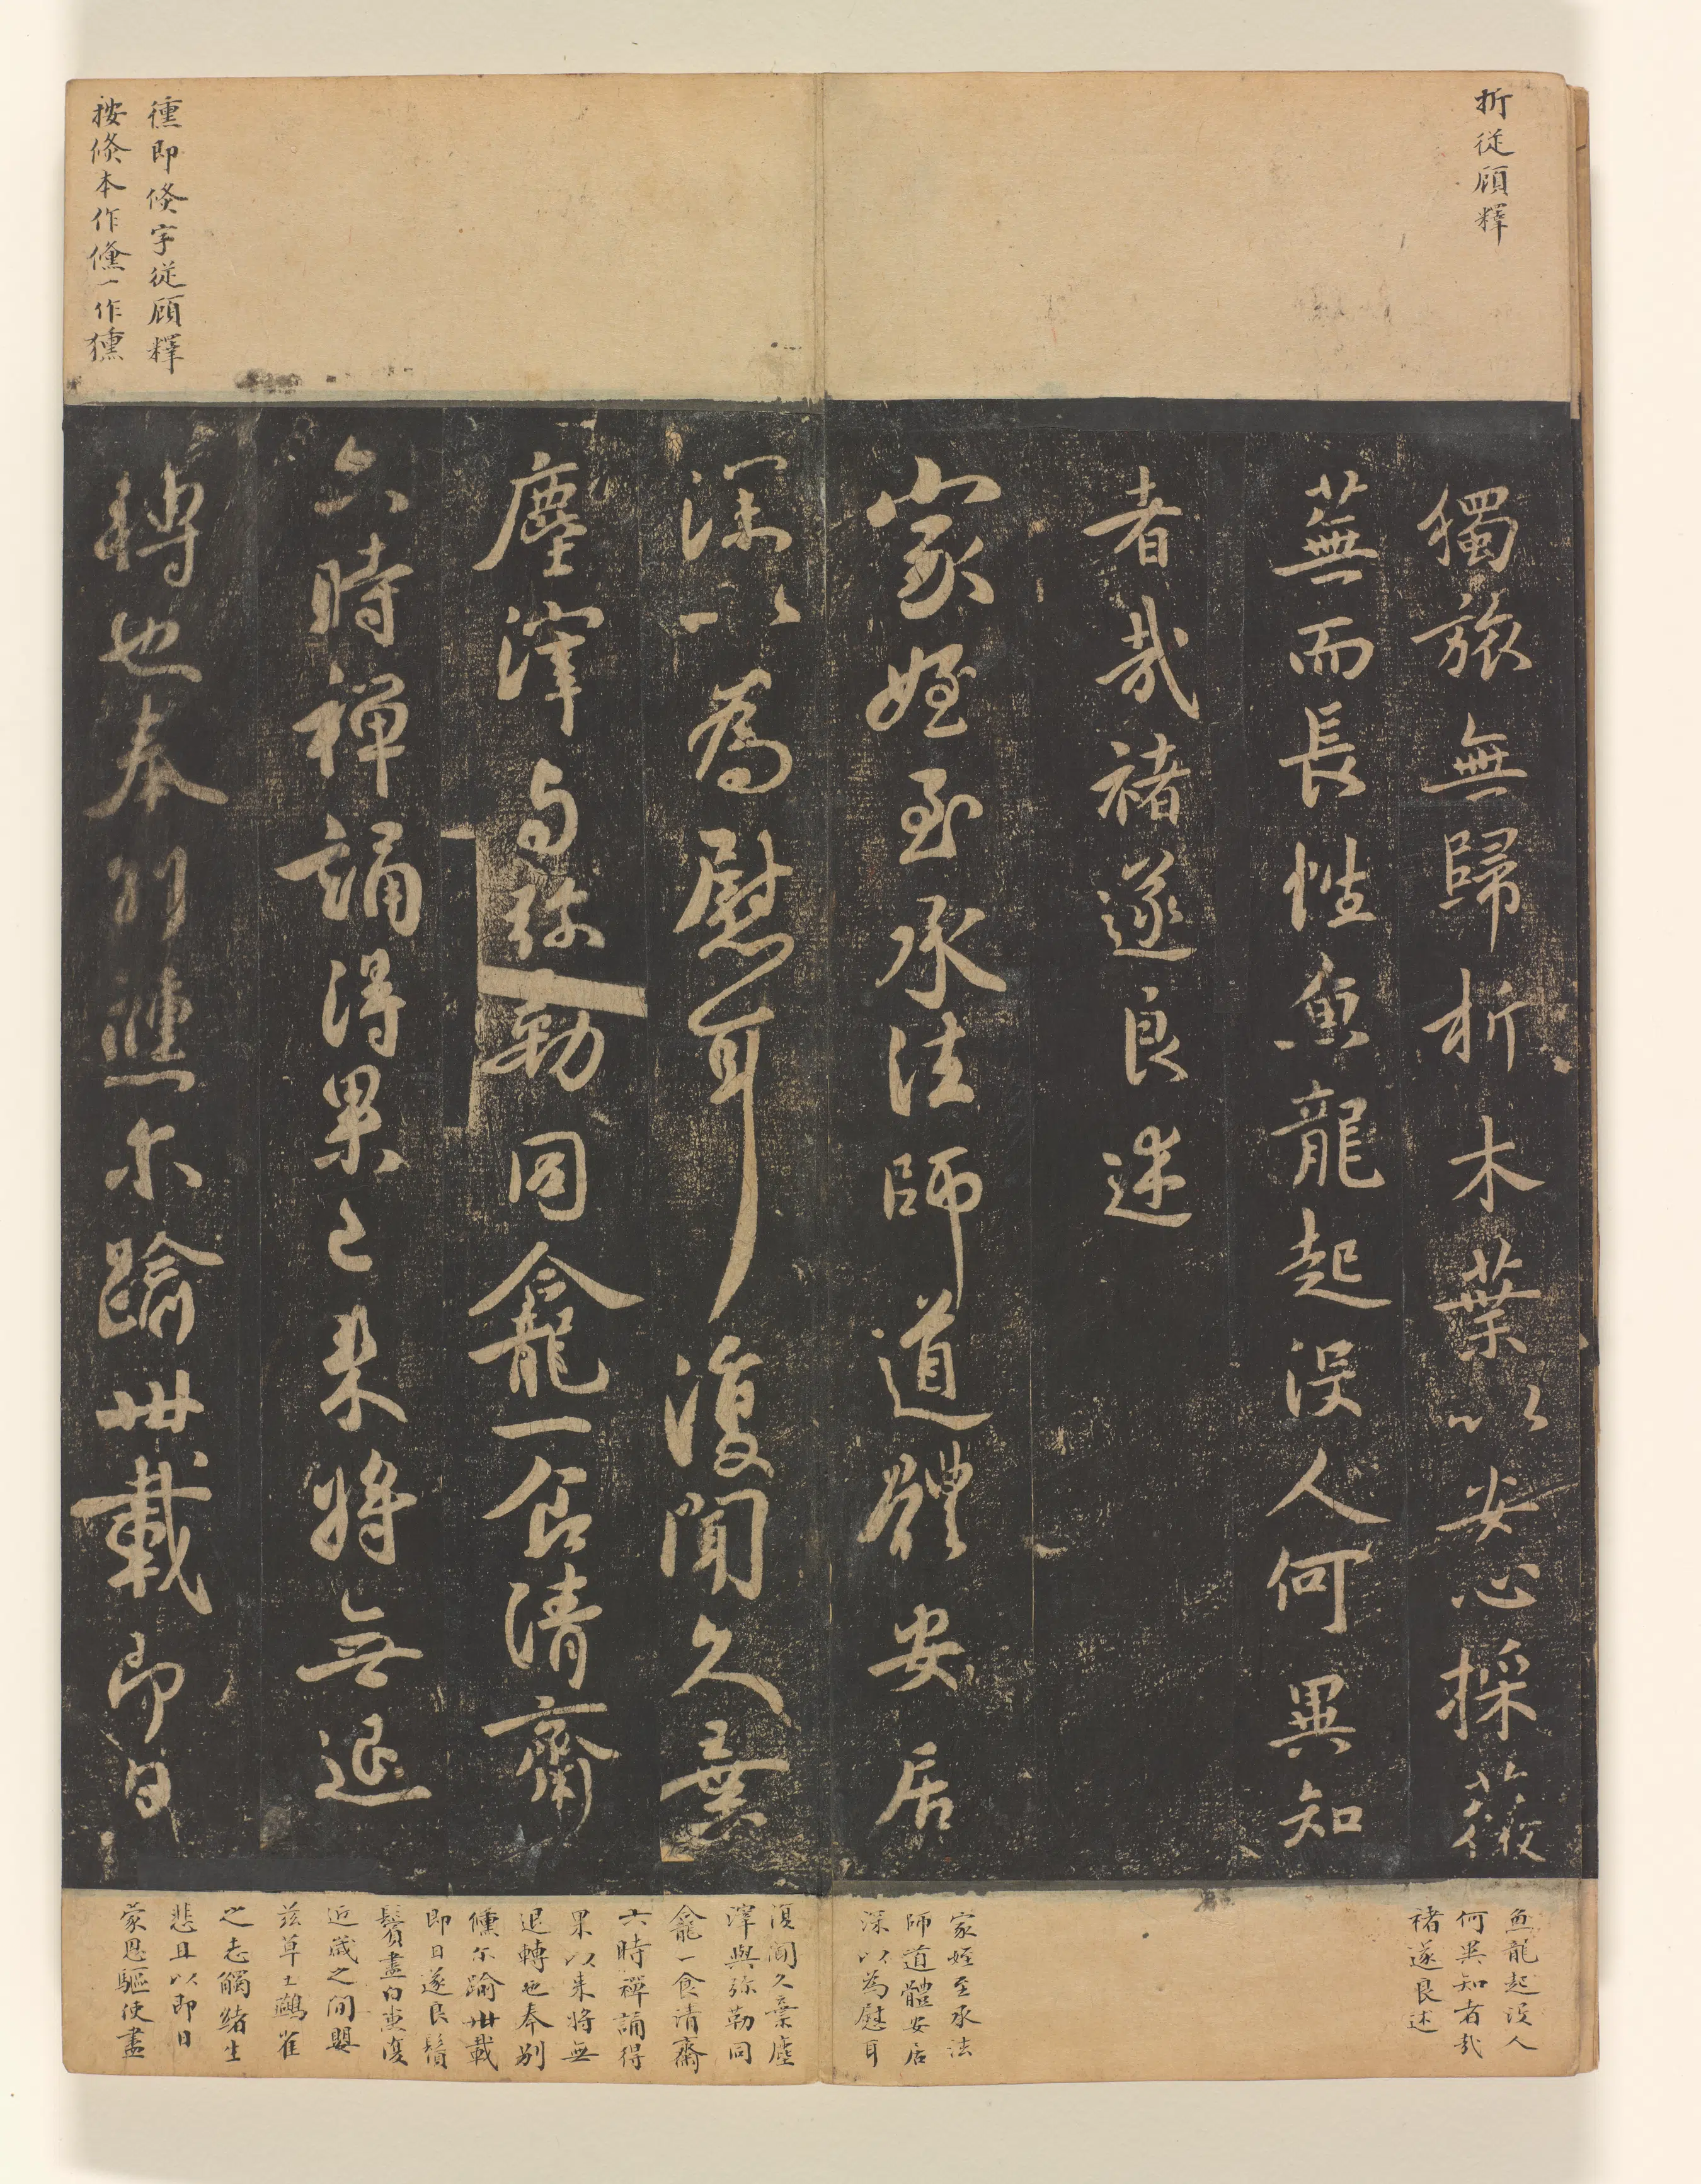 折從顧釋
獨旅無歸折木葉以安心採薇
蕪而長性魚龍起没人何異知
者哉褚遂良述
家姪至承法師道體安居
深以為慰耳復聞久棄
塵滓与弥勒同龕一食清齋
六時禪誦得果已来將無退
轉也奉別儵尒踰卅載即日
儵即倏字從顧釋
按倏本作儵一作㹅
魚龍起没人
何異知者哉
褚遂良述
家姪至承法
師道體安居
深以為慰耳
復聞久棄塵
滓與弥勒同
龕一食清齋
六時禪誦得
果以来將無
退轉也奉别
儵尒踰卅載
即日遂良鬚
鬢盡白兼復
近歲之間嬰
兹草土鷰雀
之志觸緒生
悲且以即日
蒙恩驅使盡